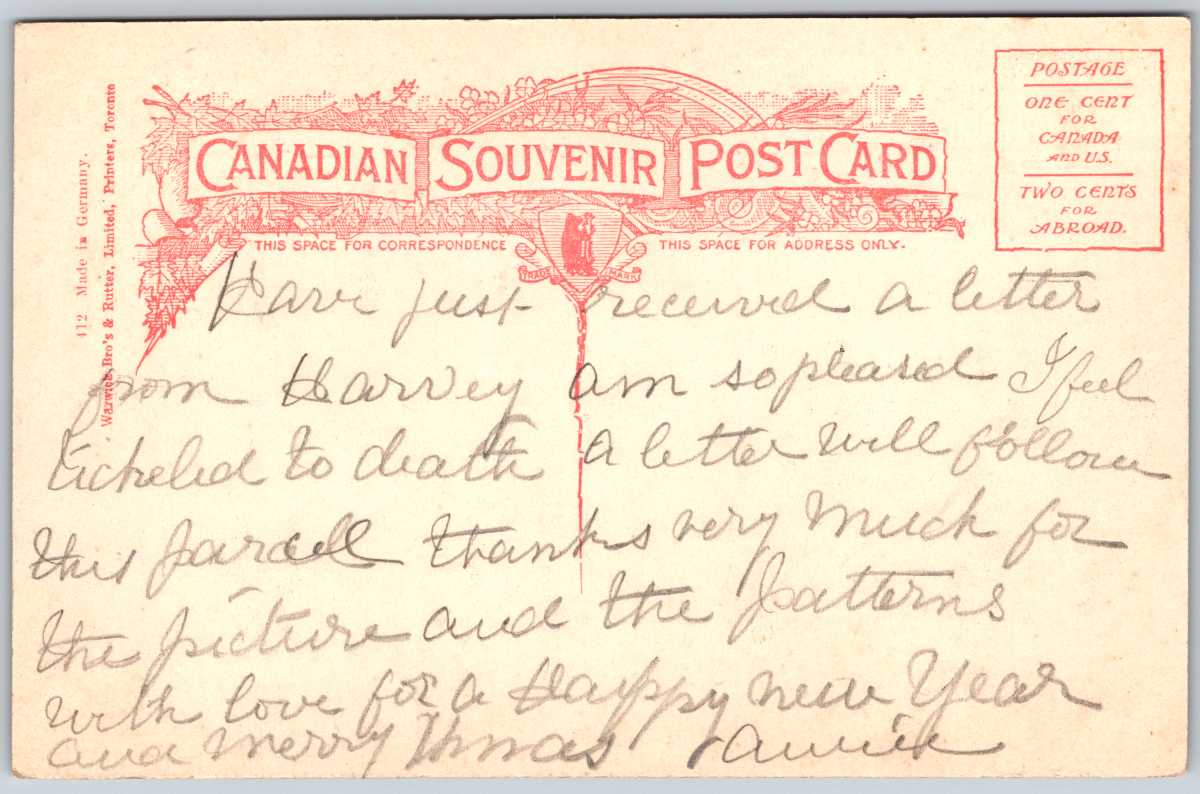 CANADIAN SOUVENIR POST CARD
THIS SPACE FOR CORRESPONDENCE
THIS SPACE FOR ADDRESS ONLY.
TRADE MARK
POSTAGE
ONE CENT
FOR
CANADA
AND U.S.
TWO CENTS
FOR
ABROAD.
412 Made in Germany.
Warwick Bro's & Rutter, Limited, Printers, Toronto
Have just received a letter
from Harvey am so pleased I feel
tickeled to death a letter will follow
this parcell thanks very much for
the picture and the patterns
with love for a Happy new Year
and merry Xmas annie